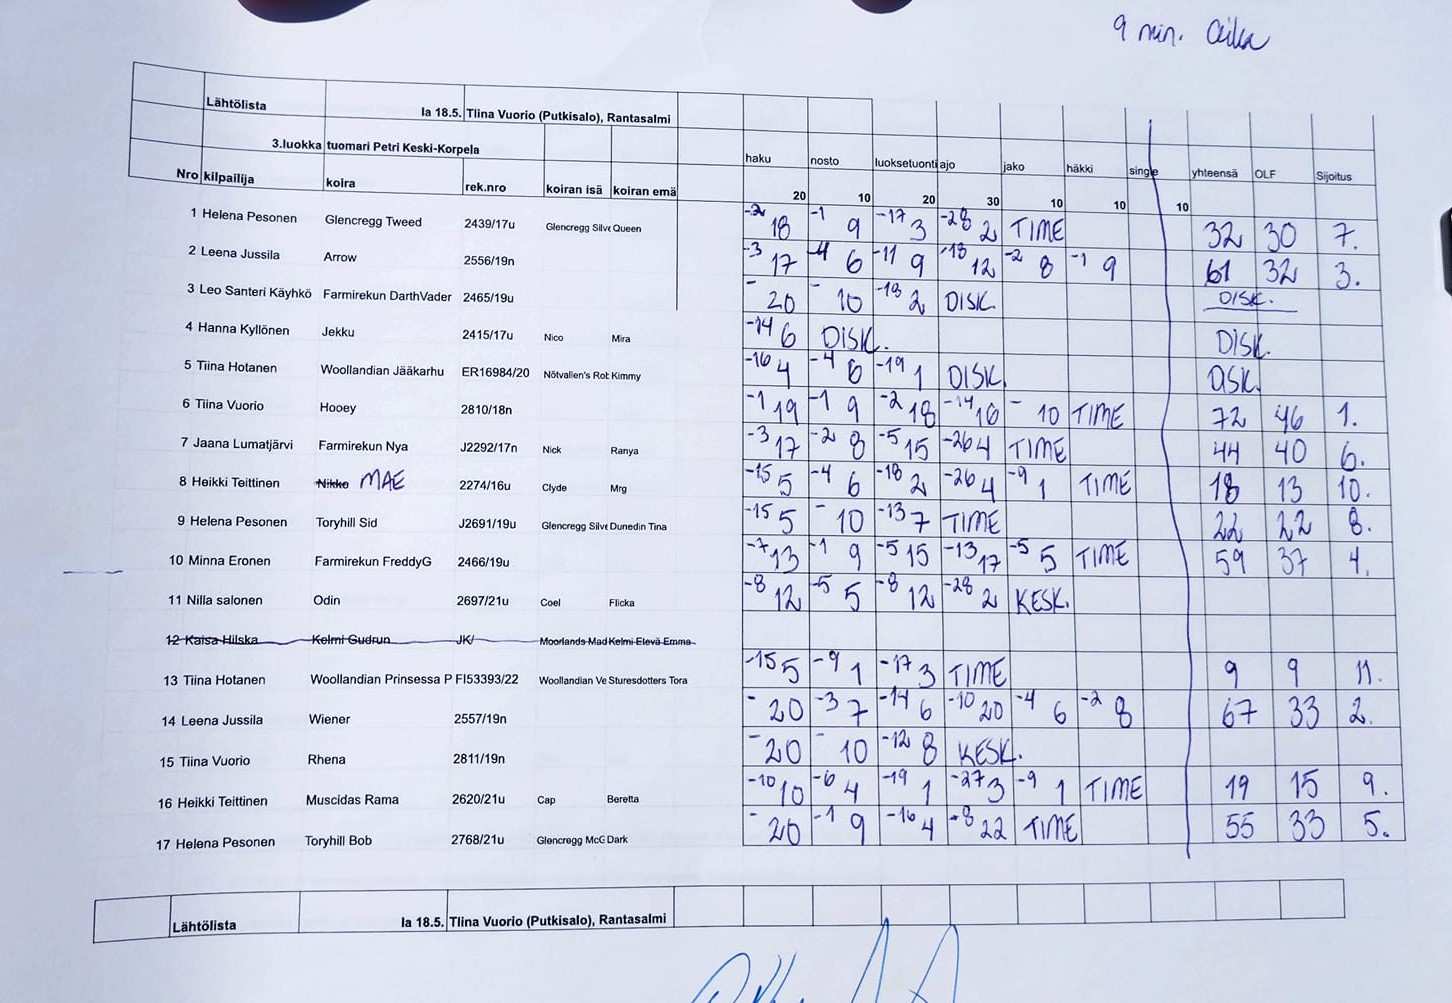 9 min. Aika
Lähtölista la 18.5. Tiina Vuorio (Putkisalo), Rantasalmi
3.luokka tuomari Petri Keski-Korpela haku nosto luoksetuonti ajo jako häkki single yhteensä OLF Sijoitus
Nro kilpailija koira rek.nro koiran isä koiran emä 20 10 20 30 10 10 10
1 Helena Pesonen Glencregg Tweed 2439/17u Glencregg Silve Queen -2 18 -1 9 -17 3 -28 2 TIME 32 30 7.
2 Leena Jussila Arrow 2556/19n -3 17 -4 6 -11 9 -18 12 -2 8 -1 9 61 32 3.
3 Leo Santeri Käyhkö Farmirekun DarthVader 2465/19u - 20 - 10 -18 2 DISK. DISK.
4 Hanna Kyllönen Jekku 2415/17u Nico Mira -14 6 DISK. DISK.
5 Tiina Hotanen Woollandian Jääkarhu ER16984/20 Nötvallen's Rob Kimmy -16 4 -4 6 -19 1 DISK. DISK.
6 Tiina Vuorio Hooey 2810/18n -1 19 -1 9 -2 18 -14 16 - 10 TIME 72 46 1.
7 Jaana Lumatjärvi Farmirekun Nya J2292/17n Nick Ranya -3 17 -2 8 -5 15 -26 4 TIME 44 40 6.
8 Heikki Teittinen Nikko MAE 2274/16u Clyde Mrg -15 5 -4 6 -18 2 -26 4 -9 1 TIME 18 13 10.
9 Helena Pesonen Toryhill Sid J2691/19u Glencregg Silve Dunedin Tina -15 5 - 10 -13 7 TIME 22 22 8.
10 Minna Eronen Farmirekun FreddyG 2466/19u -7 13 -1 9 -5 15 -13 17 -5 5 TIME 59 37 4.
11 Nilla salonen Odin 2697/21u Coel Flicka -8 12 -5 5 -8 12 -28 2 KESK.
12 Kaisa Hilska Kelmi Gudrun JK/ Moorlands Mad Kelmi Elevä Emma
13 Tiina Hotanen Woollandian Prinsessa P FI53393/22 Woollandian Ve Sturesdotters Tora -15 5 -9 1 -17 3 TIME 9 9 11.
14 Leena Jussila Wiener 2557/19n - 20 -3 7 -14 6 -10 20 -4 6 -2 8 67 33 2.
15 Tiina Vuorio Rhena 2811/19n - 20 - 10 -12 8 KESK.
16 Heikki Teittinen Muscidas Rama 2620/21u Cap Beretta -10 10 -6 4 -19 1 -27 3 -9 1 TIME 19 15 9.
17 Helena Pesonen Toryhill Bob 2768/21u Glencregg McG Dark - 20 -1 9 -16 4 -8 22 TIME 55 33 5.
Lähtölista la 18.5. Tiina Vuorio (Putkisalo), Rantasalmi